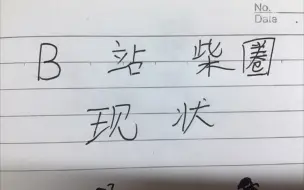 No.
Date
B 站 柴 圈
现 状